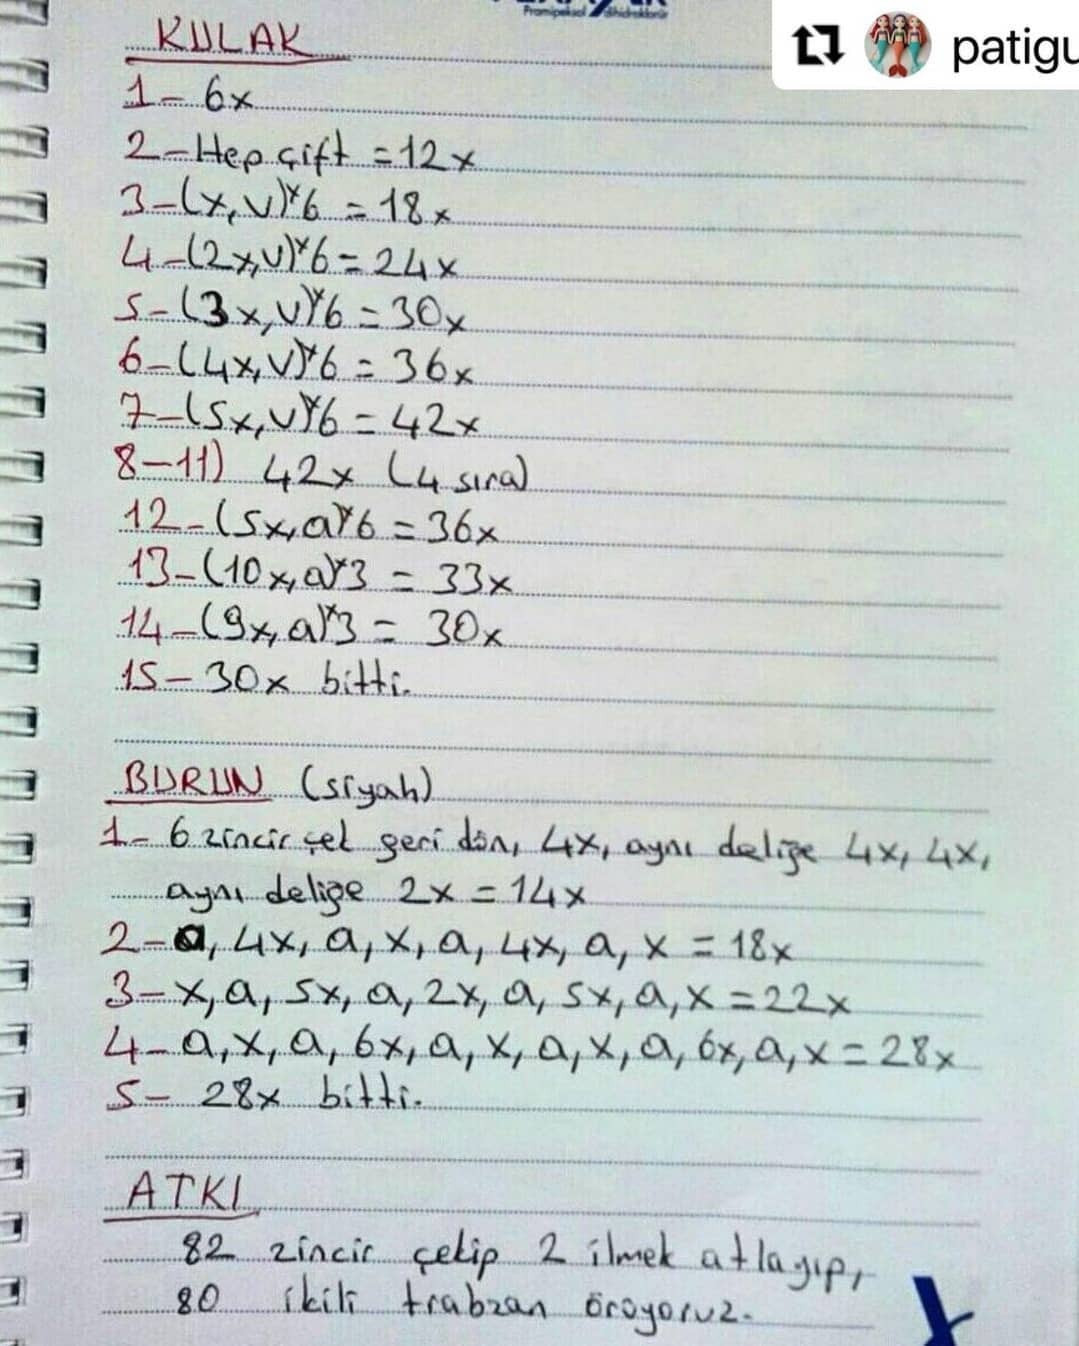 Pramipeksol dihidroklorür
patigu
KULAK
1- 6x
2- Hep çift = 12x
3-(x,v)*6 = 18x
4-(2x,v)*6 = 24x
5-(3x,v)*6 = 30x
6-(4x,v)*6 = 36x
7-(5x,v)*6 = 42x
8-11) 42x (4 sıra)
12-(5x,a)*6 = 36x
13-(10x,a)*3 = 33x
14-(9x,a)*3 = 30x
15- 30x bitti.
BURUN (siyah)
1- 6 zincir çek geri dön, 4x, aynı deliğe 4x, 4x,
aynı deliğe 2x = 14x
2-a, 4x, a, x, a, 4x, a, x = 18x
3-x, a, 5x, a, 2x, a, 5x, a, x = 22x
4-a, x, a, 6x, a, x, a, x, a, 6x, a, x = 28x
5- 28x bitti.
ATKI
82 zincir çekip 2 ilmek atlayıp,
80 ikili trabzan örüyoruz.